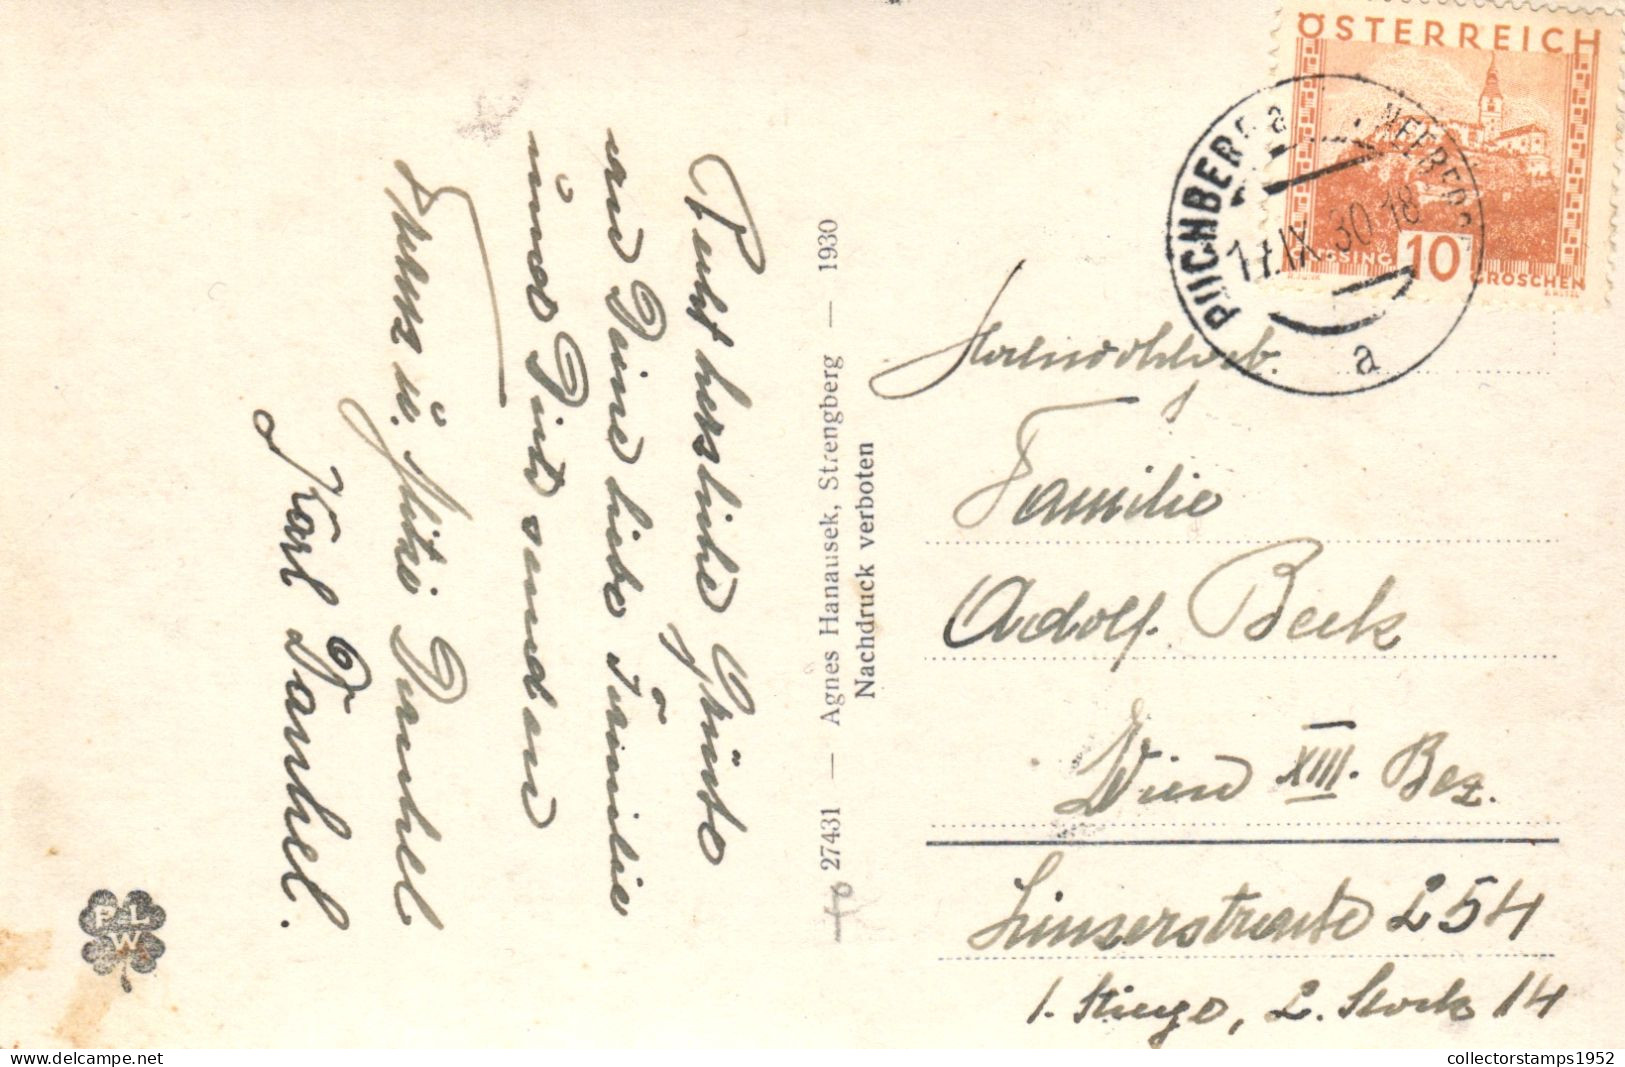 Recht herzliche Grüße
an Deine liebe Familie
und Dich senden
u. Mitzi Darihel
Karl Darihel.
27431 — Agnes Hanausek, Strengberg — 1930
Nachdruck verboten
P L
W
ÖSTERREICH
10
GROSCHEN
PUCHBERG a. SCHNEEBERG
17.IX.30.18
a
Hochwohlgeb.
Familie
Adolf Beck
Wien XIII. Bez.
Linzerstraße 254
1. Stiege, 2. Stock 14
collectorstamps1952